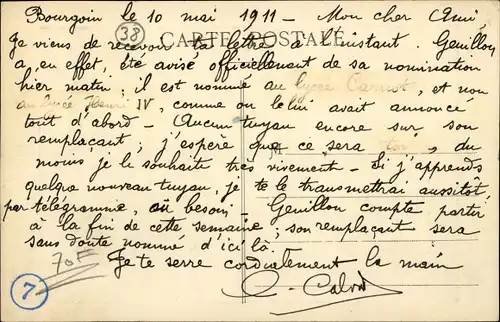 Bourgoin le 10 mai 1911 - Mon cher Ami,
38
CARTE POSTALE
Je viens de recevoir ta lettre à l'instant. Genillon
a, en effet, été avisé officiellement de sa nomination
hier matin; il est nommé au lycée Carnot, et non
au lycée Henri IV, comme on le lui avait annoncé
tout d'abord - Aucun tuyau encore sur son
remplaçant; j'espère que ce sera toi, du
moins je le souhaite très vivement - Si j'apprends
quelque nouveau tuyau, je te le transmettrai aussitôt,
par télégramme, au besoin. Genillon compte partir
à la fin de cette semaine; son remplaçant sera
sans doute nommé d'ici là.
70F
Je te serre cordialement la main
7